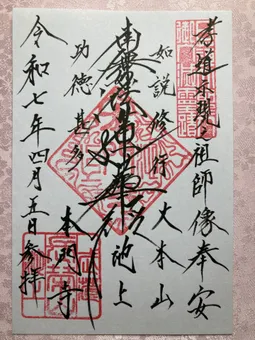 孝道示現之祖師像奉安
如説修行 大本山
南無妙法蓮華経 池上
功徳甚多 本門寺
令和七年四月五日参拝